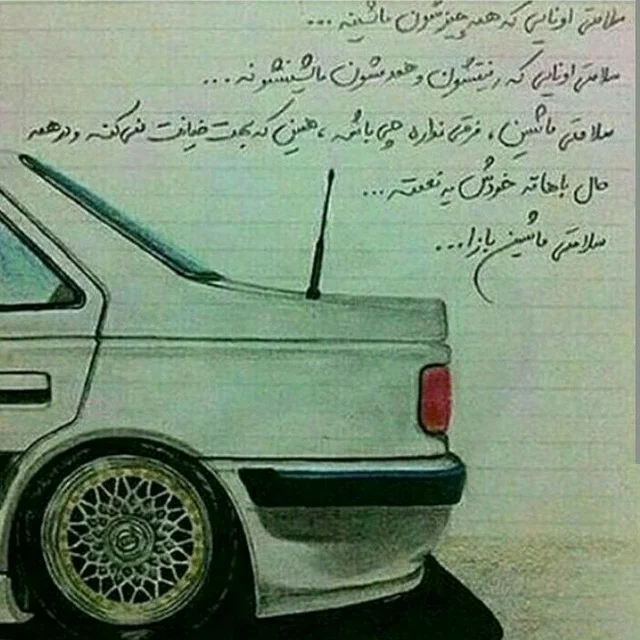 سلامتی اونایی که همه چیزشون ماشینه ...
سلامتی اونایی که رفیقشون و همدمشون ماشینشونه ...
سلامتی ماشین ، فرقی نداره چی باشه ، همین که بهت خیانت نمی‌کنه و در همه
حال باهاته خودش یه نعمته ...
سلامتی ماشین بازا ...